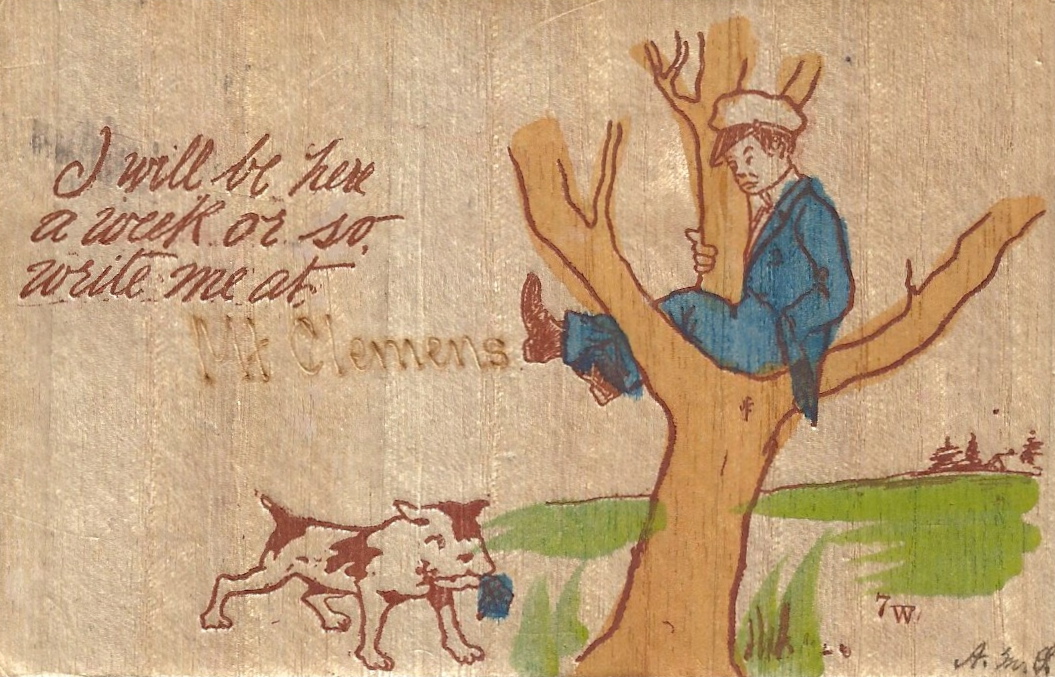 I will be here
a week or so,
write me at
Mt Clemens
7W.
A.